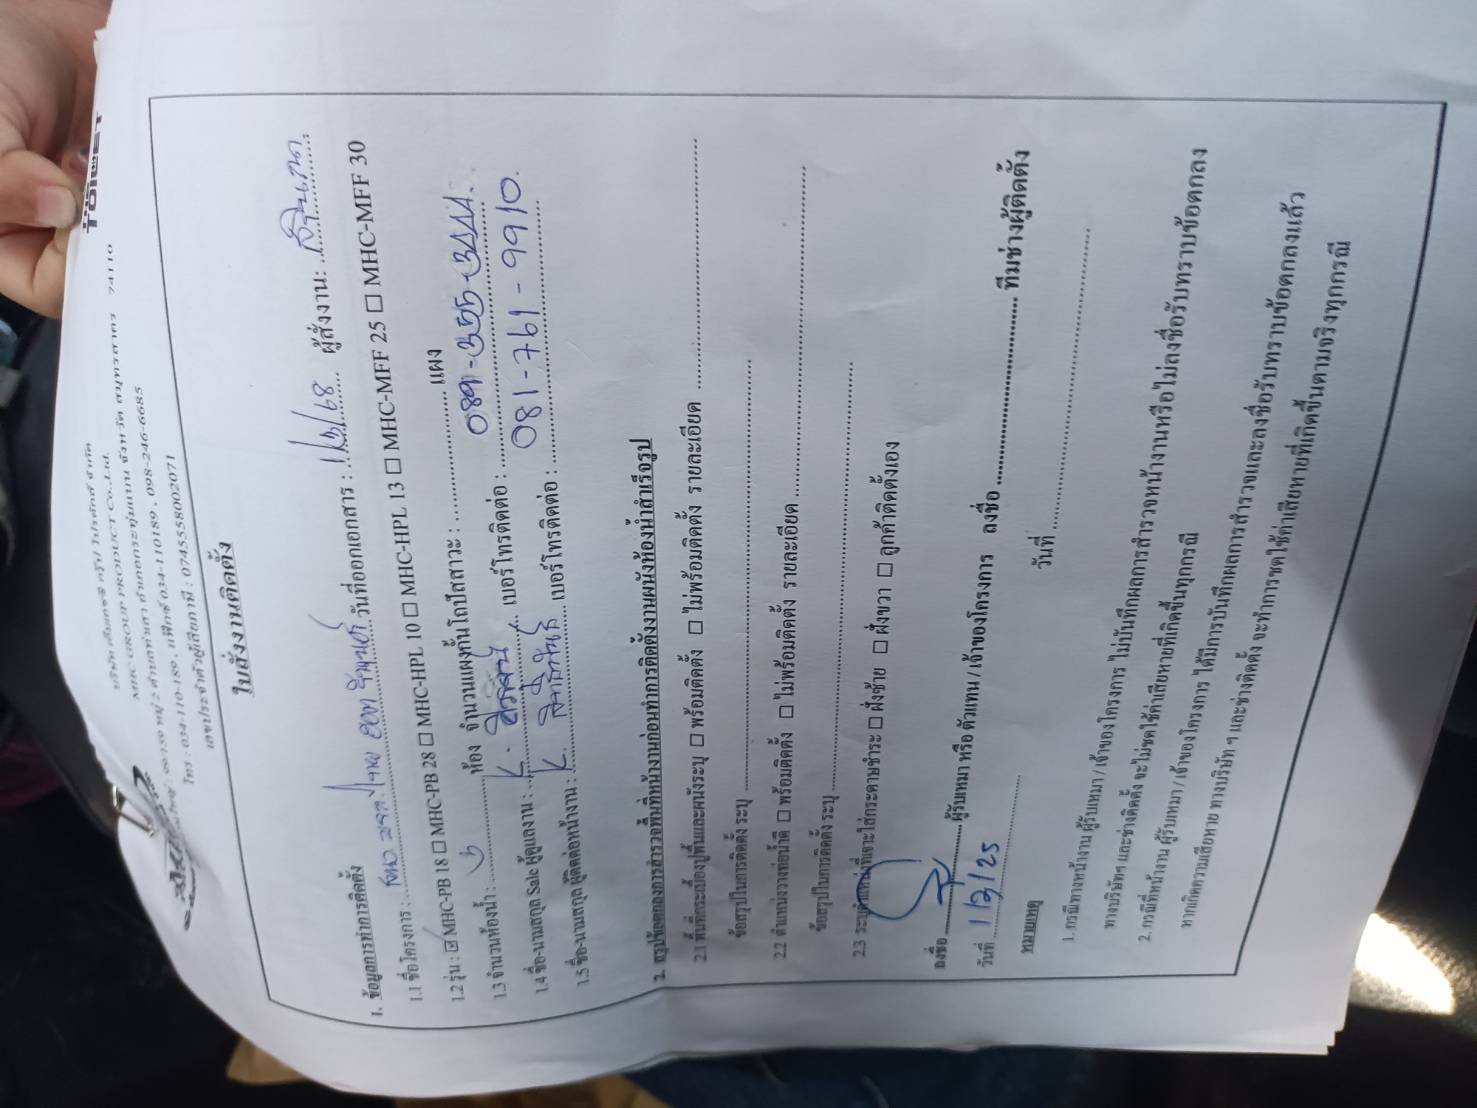 TOILET
บริษัท เอ็มเอชซี กรุ๊ป โปรดักส์ จำกัด
MHC GROUP PRODUCT Co.,Ltd.
99/159 หมู่ 2 ตำบลท่าเสา อำเภอกระทุ่มแบน จังหวัด สมุทรสาคร 74110
โทร : 034-110-189 , แฟ็กซ์ 034-110189 , 098-246-6685
เลขประจำตัวผู้เสียภาษี : 0745558002071
ใบสั่งงานติดตั้ง
1. ข้อมูลการทำการติดตั้ง
1.1 ชื่อโครงการ : วันที่ออกเอกสาร : 1/3/68 ผู้สั่งงาน:
1.2 รุ่น : ☑ MHC-PB 18 ☐ MHC-PB 28 ☐ MHC-HPL 10 ☐ MHC-HPL 13 ☐ MHC-MFF 25 ☐ MHC-MFF 30
1.3 จำนวนห้องน้ำ : ห้อง จำนวนแผงกั้นโถปัสสาวะ: แผง
1.4 ชื่อ-นามสกุล Sale ผู้ดูแลงาน : K. เบอร์โทรติดต่อ : 089-355-3444
1.5 ชื่อ-นามสกุล ผู้ติดต่อหน้างาน : K. เบอร์โทรติดต่อ : 081-761-9910
2. สรุปข้อตกลงการสำรวจพื้นที่หน้างานก่อนทำการติดตั้งงานผนังห้องน้ำสำเร็จรูป
2.1 พื้นที่กระเบื้องปูพื้นและผนังระบุ ☐ พร้อมติดตั้ง ☐ ไม่พร้อมติดตั้ง รายละเอียด
ข้อสรุปในการติดตั้ง ระบุ
2.2 ตำแหน่งวางท่อน้ำดี ☐ พร้อมติดตั้ง ☐ ไม่พร้อมติดตั้ง รายละเอียด
ข้อสรุปในการติดตั้ง ระบุ
2.3 ระบุตำแหน่งที่เจาะใส่กระดาษชำระ ☐ ฝั่งซ้าย ☐ ฝั่งขวา ☐ ลูกค้าติดตั้งเอง
ลงชื่อ ผู้รับเหมา หรือ ตัวแทน / เจ้าของโครงการ ลงชื่อ ทีมช่างผู้ติดตั้ง
วันที่ 1/3/25 วันที่
หมายเหตุ
1. กรณีทางหน้างาน ผู้รับเหมา / เจ้าของโครงการ ไม่บันทึกผลการสำรวจหน้างานหรือไม่ลงชื่อรับทราบข้อตกลง
ทางบริษัทฯ และช่างติดตั้ง จะไม่ชดใช้ค่าเสียหายที่เกิดขึ้นทุกกรณี
2. กรณีที่หน้างาน ผู้รับเหมา / เจ้าของโครงการ ได้มีการบันทึกผลการสำรวจและลงชื่อรับทราบข้อตกลงแล้ว
หากเกิดความเสียหาย ทางบริษัท ฯ และช่างติดตั้ง จะทำการชดใช้ค่าเสียหายที่เกิดขึ้นตามจริงทุกกรณี